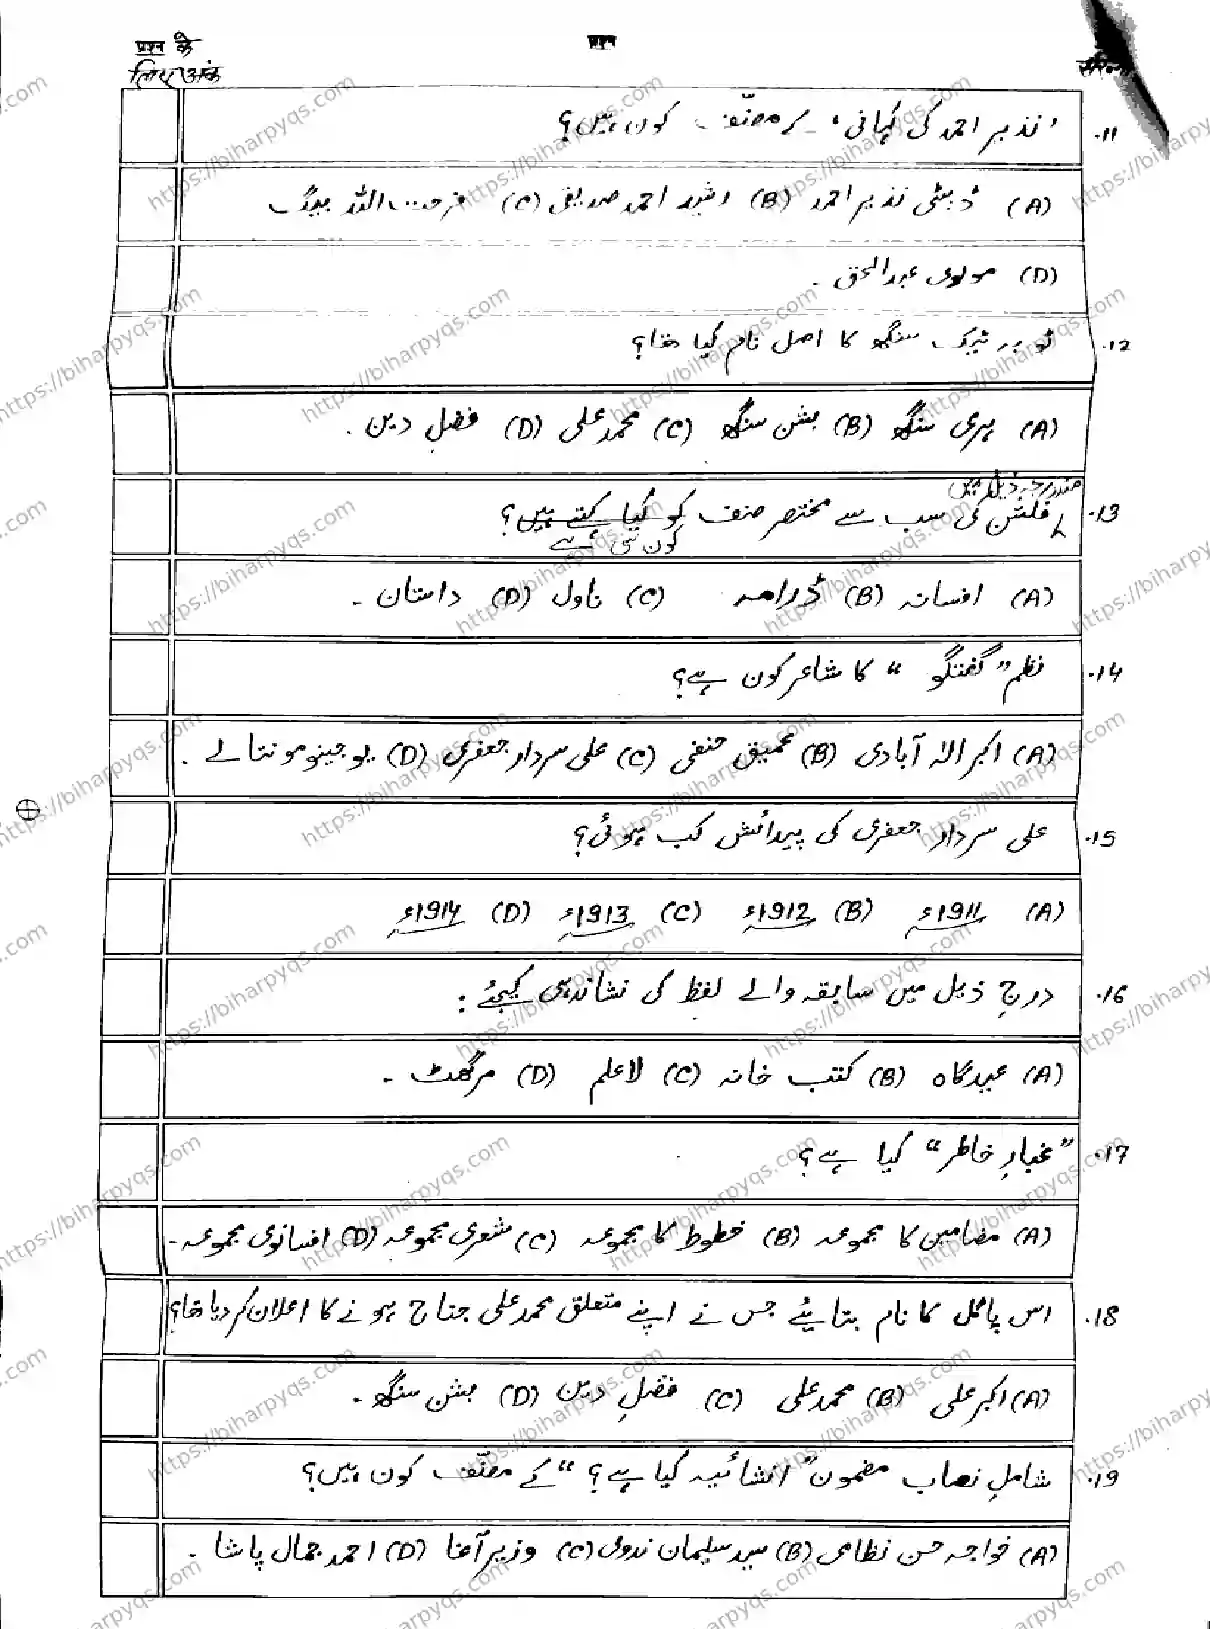 प्रश्न के
लिए अंक
प्रश्न
11. ’نذیر احمد کی کہانی‘ کے مصنّف کون ہیں؟
(A) ڈپٹی نذیر احمد (B) رشید احمد صدیقی (C) فرحت اللہ بیگ
(D) مولوی عبدالحق ۔
12. ٹوبہ ٹیک سنگھ کا اصل نام کیا تھا؟
(A) ہری سنگھ (B) بشن سنگھ (C) محمد علی (D) فضل دین ۔
مندرجہ ذیل میں
13. فکشن کی سب سے مختصر صنف کو کیا کہتے ہیں؟
کون سی ہے
(A) افسانہ (B) ڈرامہ (C) ناول (D) داستان ۔
14. نظم ”گفتگو“ کا شاعر کون ہے؟
(A) اکبر الہ آبادی (B) عمیق حنفی (C) علی سردار جعفری (D) یوجینو مونتالے ۔
15. علی سردار جعفری کی پیدائش کب ہوئی؟
(A) 1911ء (B) 1912ء (C) 1913ء (D) 1914ء
16. درج ذیل میں سابقہ والے لفظ کی نشاندہی کیجئے :
(A) عیدگاہ (B) کتب خانہ (C) لاعلم (D) مرگھٹ ۔
17. ”غبارِ خاطر“ کیا ہے؟
(A) مضامین کا مجموعہ (B) خطوط کا مجموعہ (C) شعری مجموعہ (D) افسانوی مجموعہ ۔
18. اس پاگل کا نام بتایئے جس نے اپنے متعلق محمد علی جناح ہونے کا اعلان کر دیا تھا؟
(A) اکبر علی (B) محمد علی (C) فضلِ دین (D) بشن سنگھ ۔
19. شاملِ نصاب مضمون ”انشائیہ کیا ہے؟“ کے مصنّف کون ہیں؟
(A) خواجہ حسن نظامی (B) سید سلیمان ندوی (C) وزیر آغا (D) احمد جمال پاشا ۔
https://biharpyqs.com